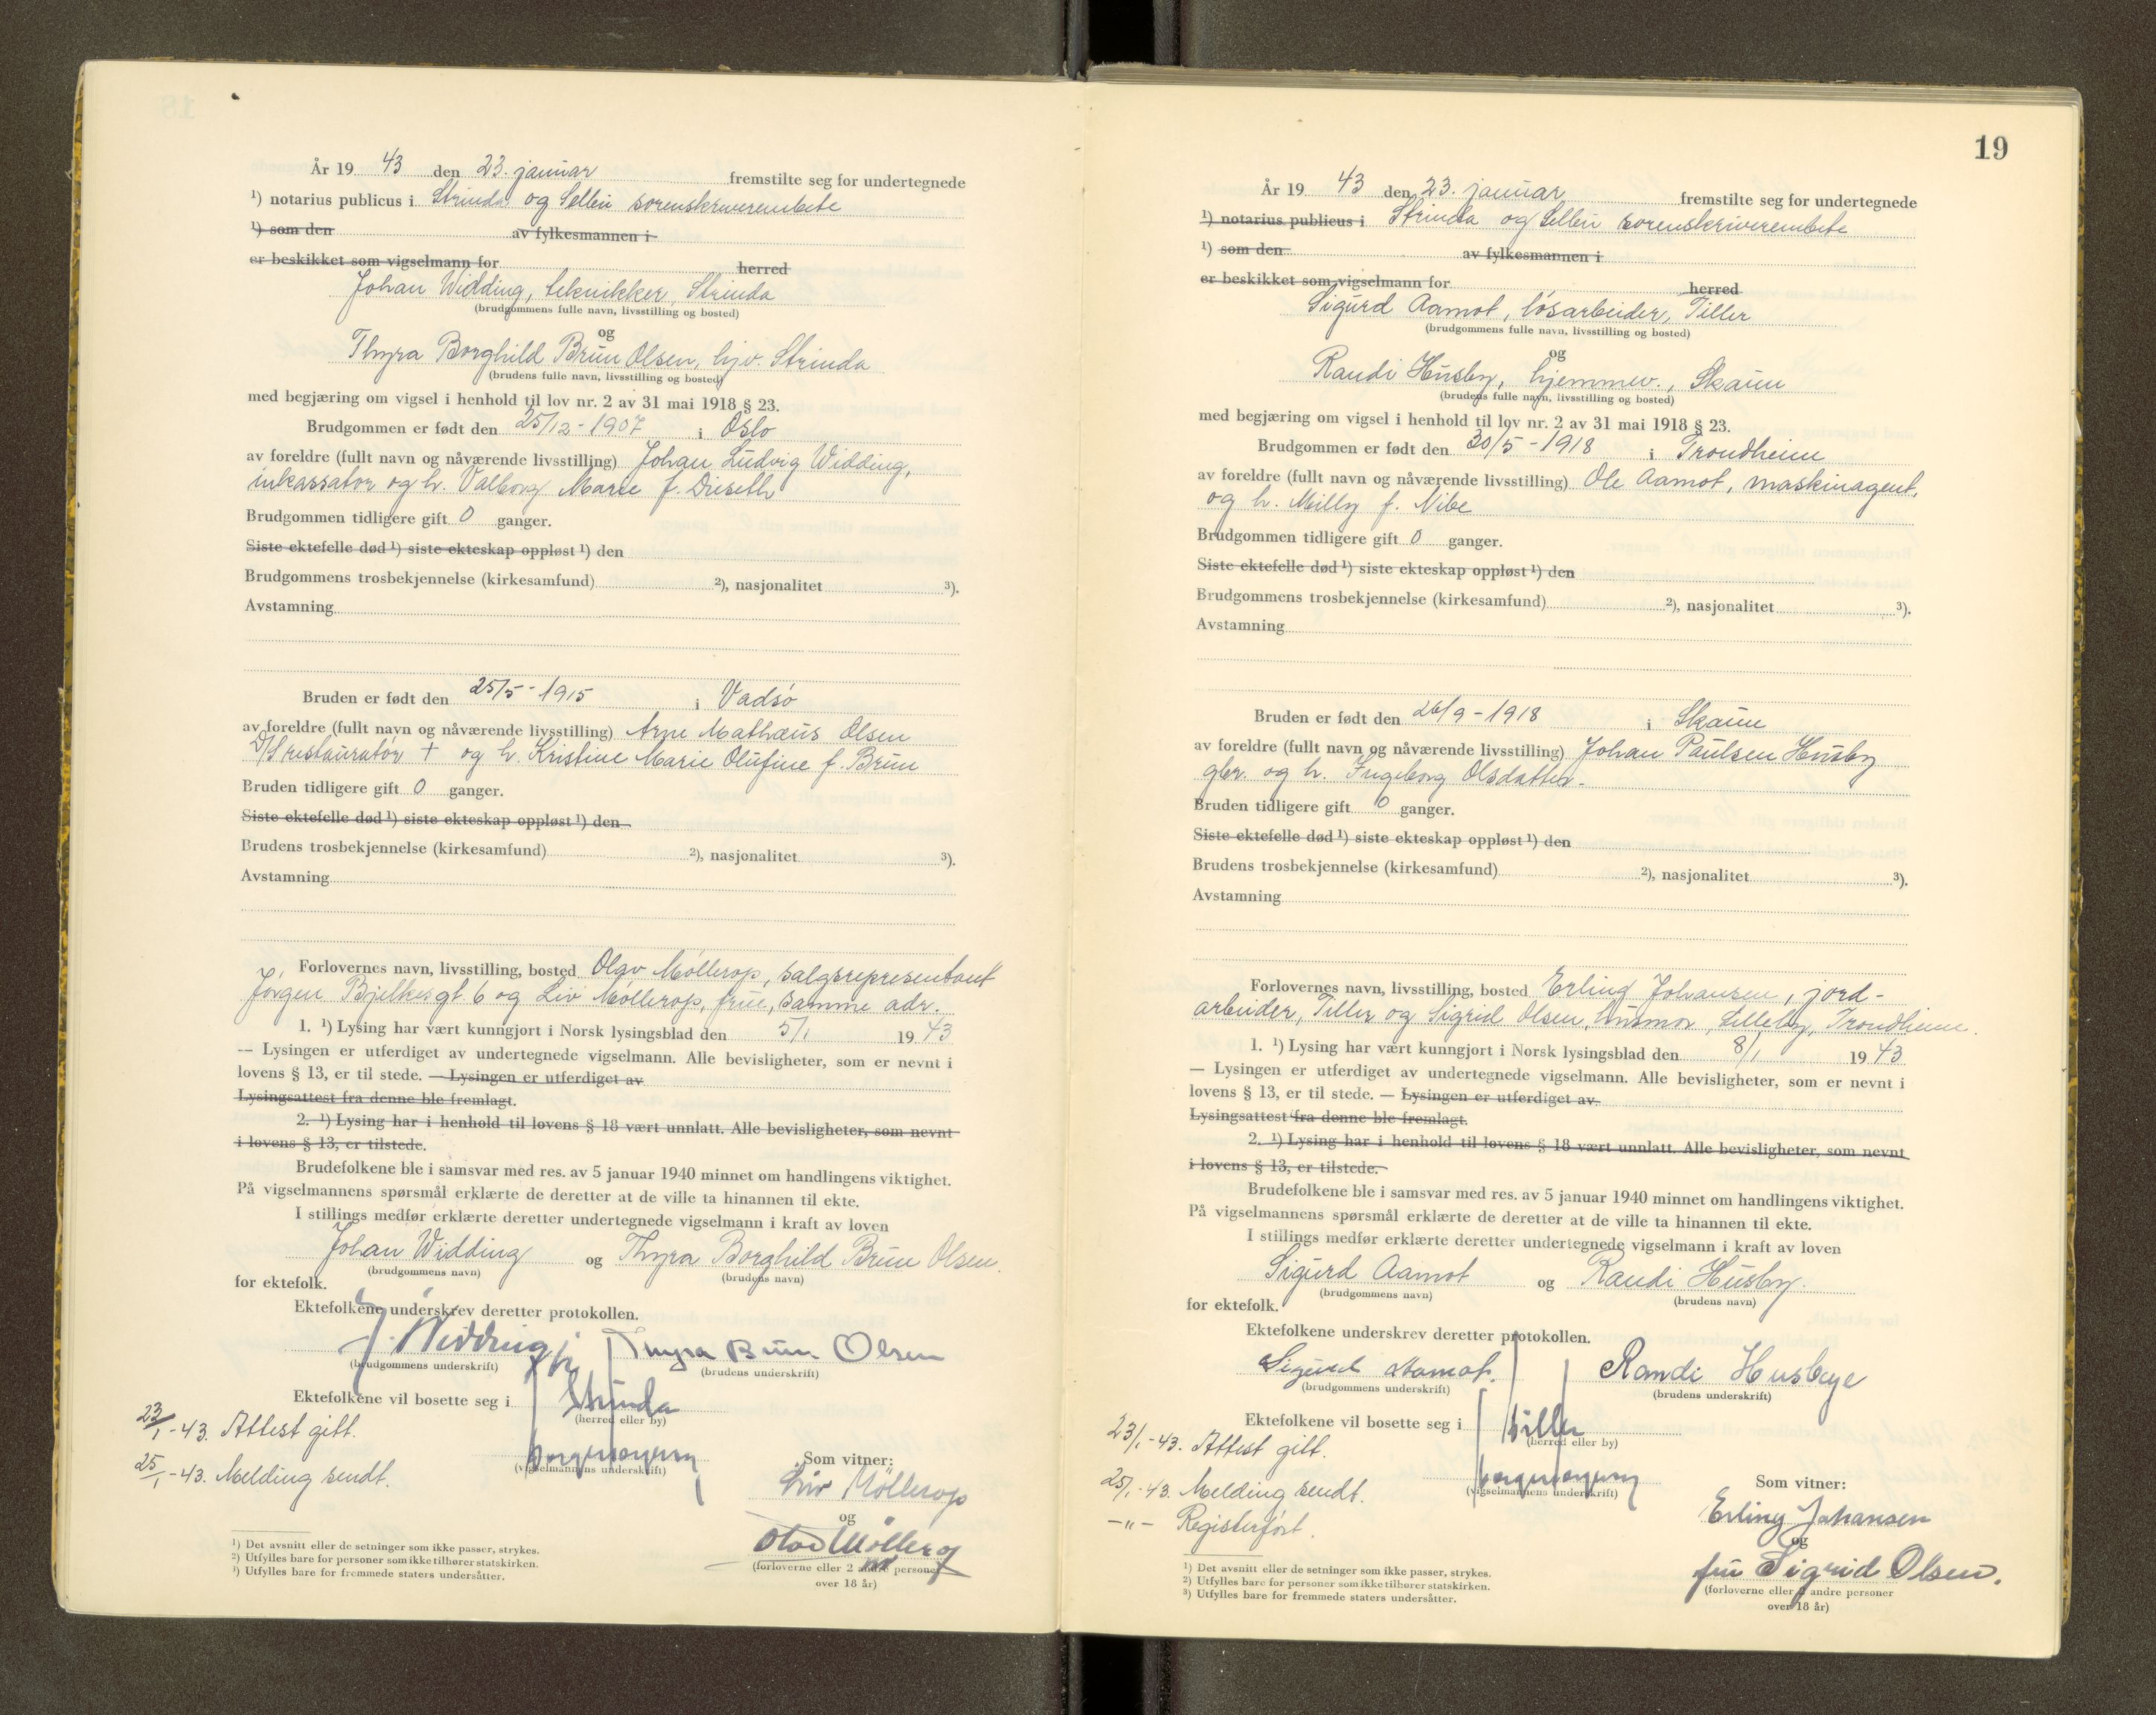 År 19 43 den 23. januar fremstilte seg for undertegnede
¹) notarius publicus i Strinda og Selbu sorenskriverembete
¹) som den av fylkesmannen i
er beskikket som vigselmann for herred
Johan Widding, teknikker, Strinda
(brudgommens fulle navn, livsstilling og bosted)
og
Thyra Borghild Brun Olsen, hjv. Strinda
(brudens fulle navn, livsstilling og bosted)
med begjæring om vigsel i henhold til lov nr. 2 av 31 mai 1918 § 23.
Brudgommen er født den 25/12-1907 i Oslo
av foreldre (fullt navn og nåværende livsstilling) Johan Ludvig Widding,
inkassator og h. Valborg Marie f. Dieseth
Brudgommen tidligere gift 0 ganger.
Siste ektefelle død ¹) siste ekteskap oppløst ¹) den
Brudgommens trosbekjennelse (kirkesamfund) ²), nasjonalitet ³).
Avstamning
Bruden er født den 25/5-1915 i Vadsö
av foreldre (fullt navn og nåværende livsstilling) Arne Mathæus Olsen
D/S restauratör + og h. Kristine Marie Olufine f. Brun
Bruden tidligere gift 0 ganger.
Siste ektefelle død ¹) siste ekteskap oppløst ¹) den
Brudens trosbekjennelse (kirkesamfund) ²), nasjonalitet ³).
Avstamning
Forlovernes navn, livsstilling, bosted Olav Möllerop, salgsrepresentant
Jörgen Bjelkes gt 6 og Liv Möllerop, frue, samme adr.
1. ¹) Lysing har vært kunngjort i Norsk lysingsblad den 5/1 19 43
— Lysingen er utferdiget av undertegnede vigselmann. Alle bevisligheter, som er nevnt i
lovens § 13, er til stede. — Lysingen er utferdiget av
Lysingsattest fra denne ble fremlagt.
2. ¹) Lysing har i henhold til lovens § 18 vært unnlatt. Alle bevisligheter, som nevnt
i lovens § 13, er tilstede.
Brudefolkene ble i samsvar med res. av 5 januar 1940 minnet om handlingens viktighet.
På vigselmannens spørsmål erklærte de deretter at de ville ta hinannen til ekte.
I stillings medfør erklærte deretter undertegnede vigselmann i kraft av loven
Johan Widding og Thyra Borghild Brun Olsen.
(brudgommens navn) (brudens navn)
for ektefolk.
Ektefolkene underskrev deretter protokollen.
J. Widding jr. Thyra Brun Olsen
(brudgommens underskrift) (brudens underskrift)
Ektefolkene vil bosette seg i Strinda
(herred eller by)
23/1-43. Attest gitt.
(vigselmannens underskrift)
25/1-43. Melding sendt.
Som vitner:
Liv Möllerop
og
Olav Möllerop
(forloverne eller 2 andre personer
over 18 år)
¹) Det avsnitt eller de setninger som ikke passer, strykes.
²) Utfylles bare for personer som ikke tilhører statskirken.
³) Utfylles bare for fremmede staters undersåtter.
19
År 19 43 den 23. januar fremstilte seg for undertegnede
¹) notarius publicus i Strinda og Selbu sorenskriverembete
¹) som den av fylkesmannen i
er beskikket som vigselmann for herred
Sigurd Aamot, lösarbeider, Tiller
(brudgommens fulle navn, livsstilling og bosted)
og
Randi Husby, hjemmev., Skaun
(brudens fulle navn, livsstilling og bosted)
med begjæring om vigsel i henhold til lov nr. 2 av 31 mai 1918 § 23.
Brudgommen er født den 30/5-1918 i Trondheim
av foreldre (fullt navn og nåværende livsstilling) Ole Aamot, maskinagent,
og h. Milly f. Nibe
Brudgommen tidligere gift 0 ganger.
Siste ektefelle død ¹) siste ekteskap oppløst ¹) den
Brudgommens trosbekjennelse (kirkesamfund) ²), nasjonalitet ³).
Avstamning
Bruden er født den 26/9-1918 i Skaun
av foreldre (fullt navn og nåværende livsstilling) Johan Paulsen Husby
gbr. og h. Ingeborg Olsdatter.
Bruden tidligere gift 0 ganger.
Siste ektefelle død ¹) siste ekteskap oppløst ¹) den
Brudens trosbekjennelse (kirkesamfund) ²), nasjonalitet ³).
Avstamning
Forlovernes navn, livsstilling, bosted Erling Johansen, jord-
arbeider, Tiller og Sigrid Olsen, husmor, Lilleby, Trondheim.
1. ¹) Lysing har vært kunngjort i Norsk lysingsblad den 8/1 19 43
— Lysingen er utferdiget av undertegnede vigselmann. Alle bevisligheter, som er nevnt i
lovens § 13, er til stede. — Lysingen er utferdiget av
Lysingsattest fra denne ble fremlagt.
2. ¹) Lysing har i henhold til lovens § 18 vært unnlatt. Alle bevisligheter, som nevnt
i lovens § 13, er tilstede.
Brudefolkene ble i samsvar med res. av 5 januar 1940 minnet om handlingens viktighet.
På vigselmannens spørsmål erklærte de deretter at de ville ta hinannen til ekte.
I stillings medfør erklærte deretter undertegnede vigselmann i kraft av loven
Sigurd Aamot og Randi Husby.
(brudgommens navn) (brudens navn)
for ektefolk.
Ektefolkene underskrev deretter protokollen.
Sigurd Aamot. Randi Husbye
(brudgommens underskrift) (brudens underskrift)
Ektefolkene vil bosette seg i Tiller
(herred eller by)
23/1-43. Attest gitt.
(vigselmannens underskrift)
25/1-43. Melding sendt.
—"— Registerfört.
Som vitner:
Erling Johansen
og
fru Sigrid Olsen.
(forloverne eller 2 andre personer
over 18 år)
¹) Det avsnitt eller de setninger som ikke passer, strykes.
²) Utfylles bare for personer som ikke tilhører statskirken.
³) Utfylles bare for fremmede staters undersåtter.